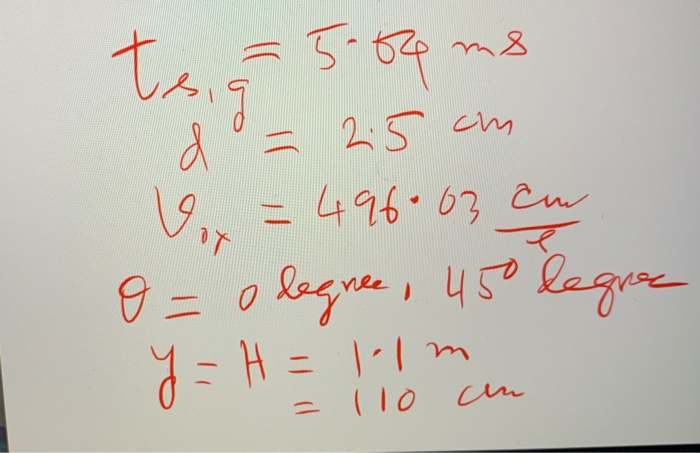 t s,g = 5.04 ms
d = 2.5 cm
v ox = 496.03 cm/s
θ = 0 degree, 45° degree
y = H = 1.1 m
= 110 cm